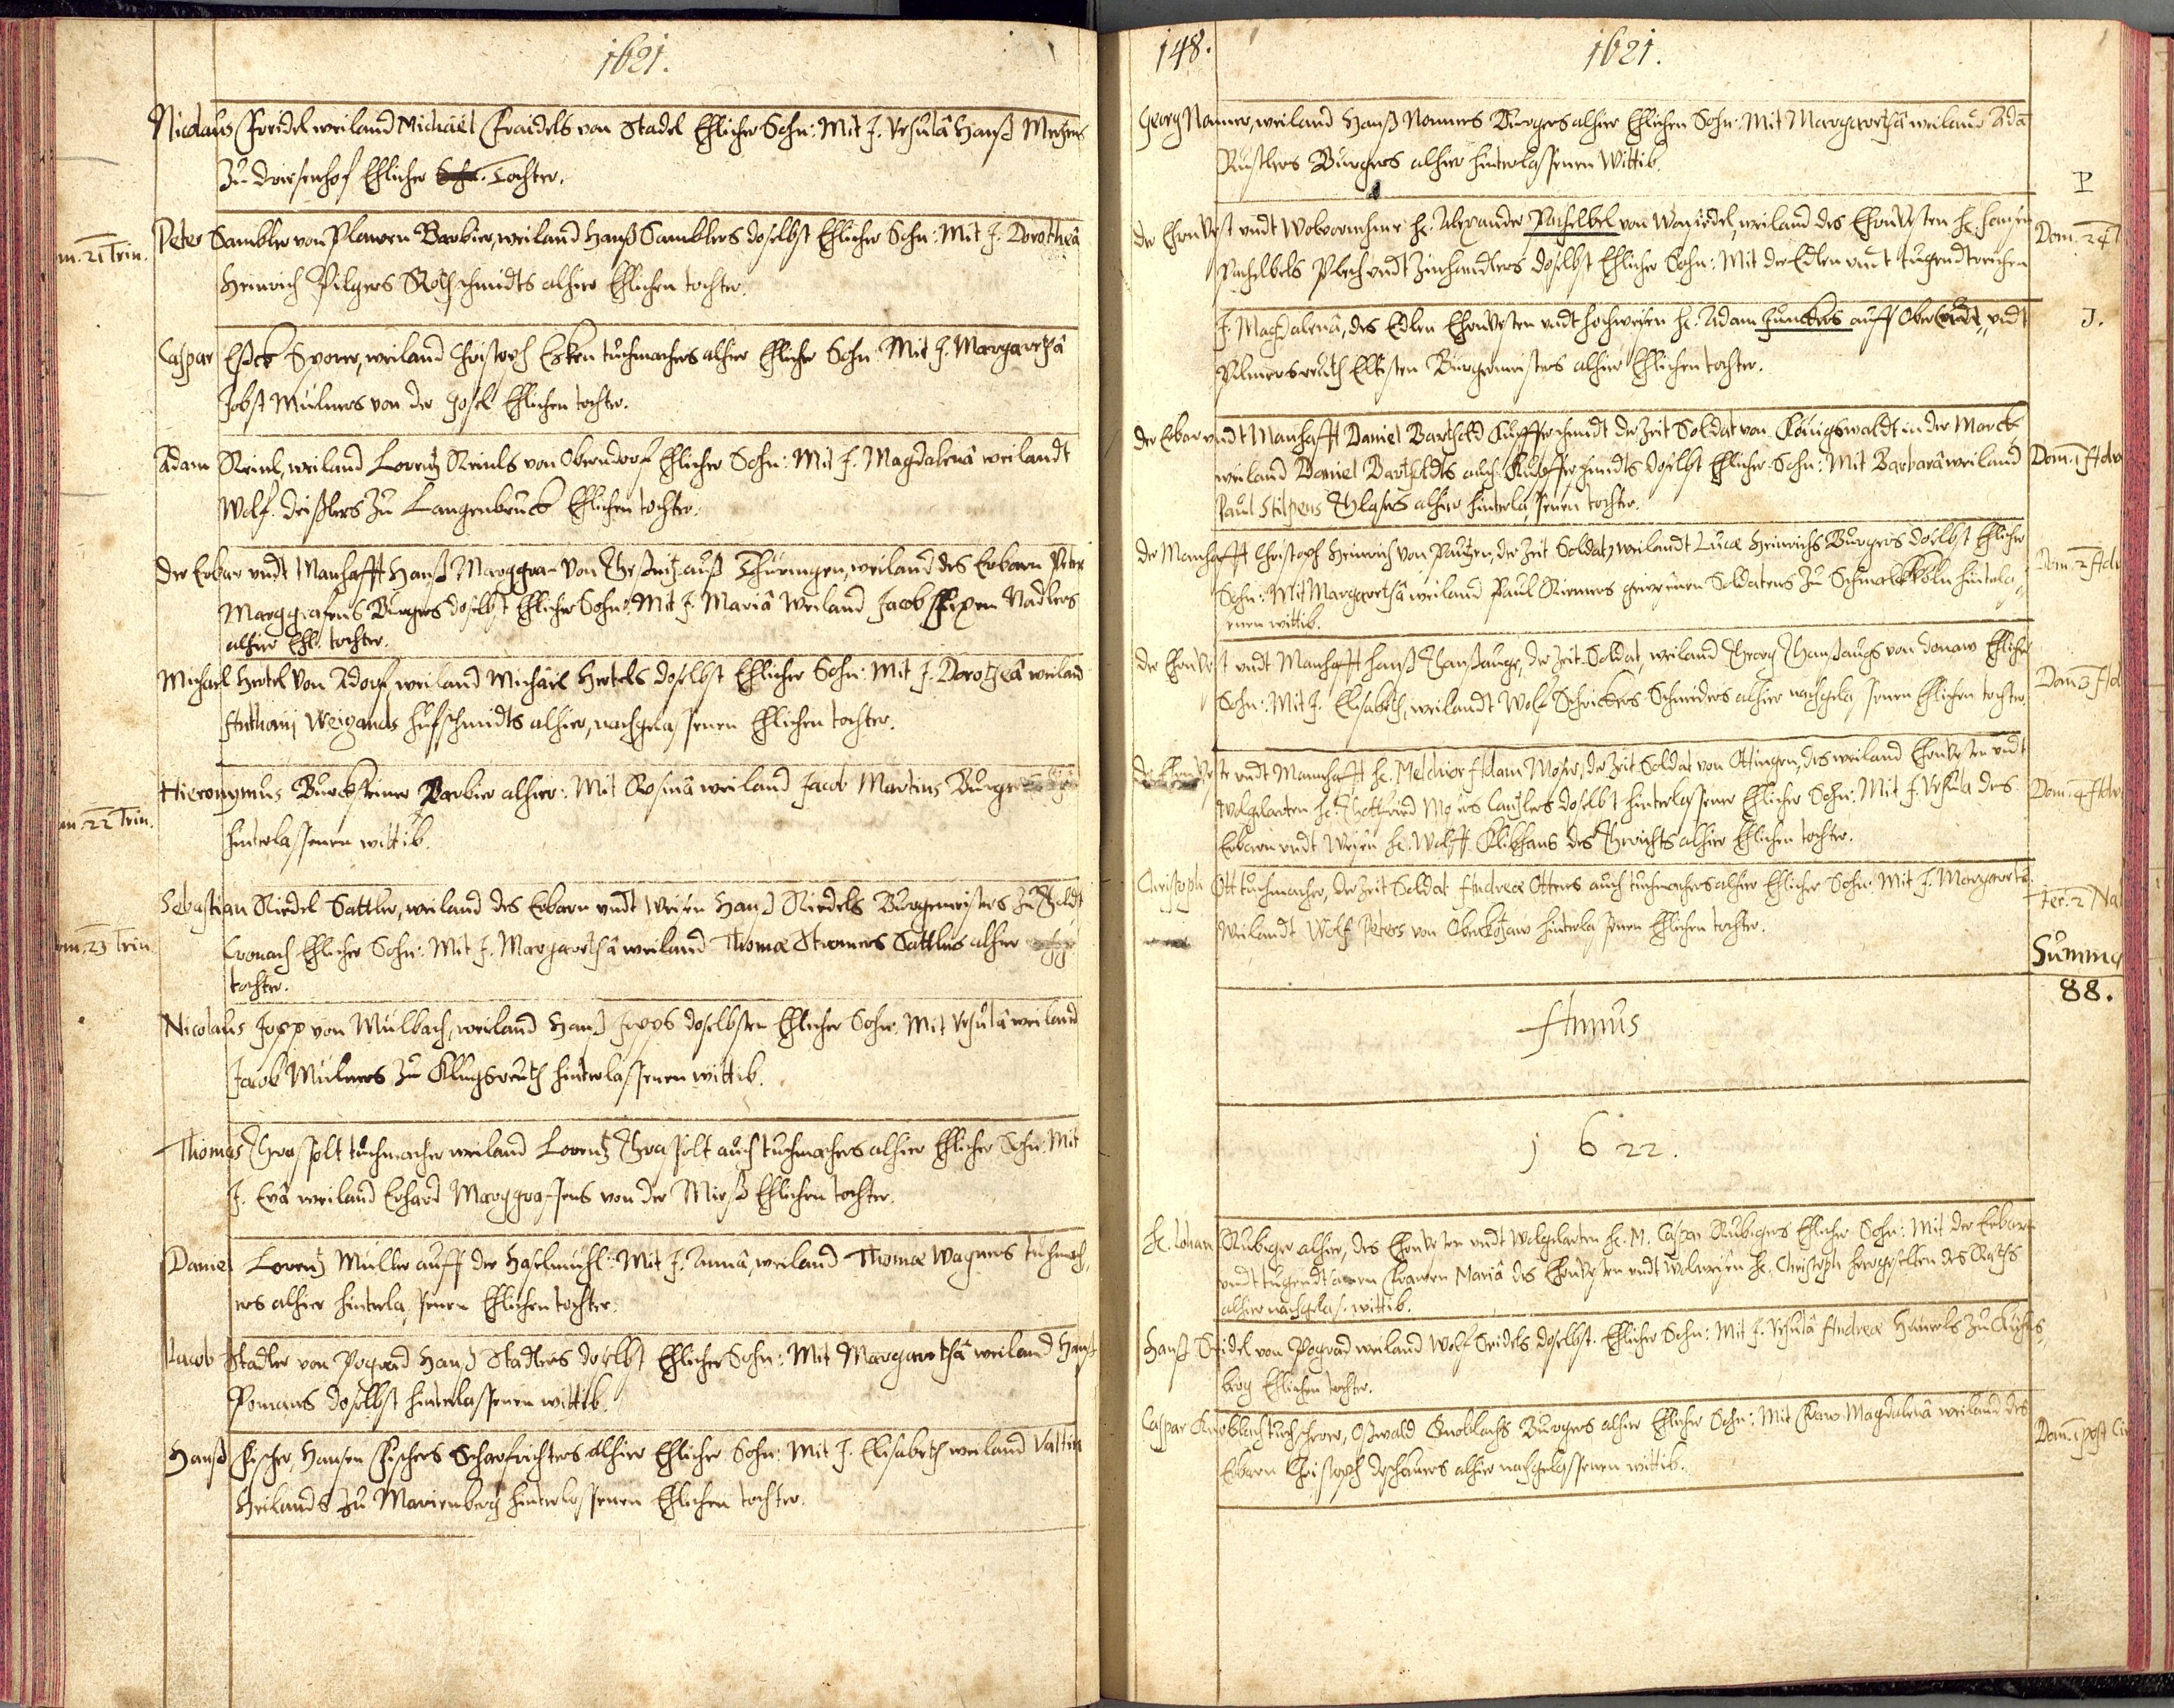 1621.
Nicolaus Freidel weiland Michael Fraidels von Stadel Ehlicher Sohn: Mit J. Ursulâ Hanß
zu Ehlicher Tochter.
Peter Sambler von Plawen Barbier, weiland Hanß Samblers doselbst Ehlicher Sohn: Mit J. Dorotheâ
m. 21 Trin.
Heinrich Pilgers Rothschmidts alhier Ehlichen tochter.
Caspar Sporer, weiland Christoph tuchmachers alhier Ehlicher Sohn: Mit J. Margarethâ
Jobst Mulners von der Ehlichen tochter.
Adam Reinl, weiland Lorentz Reinls von Oberndorf Ehlicher Sohn: Mit J. Magdalenâ weilandt
Wolf zu Langenbruck Ehlichen tochter.
Der Erbar undt Manhafft Hanß Marggraf von auß Thüringen, weiland des Erbarn Peter
Marggrafens Burgers doselbst Ehlicher Sohn: Mit J. Mariâ Weiland Jacob Nadlers
alhier Ehl. tochter.
Michael Hertel von Adorf weiland Michäel Hertels doselbst Ehlicher Sohn: Mit J. Dorotheâ weiland
Anthonij Weigands hufschmidts alhier, nachgelassenen Ehlichen tochter.
Hieronymus Barbier alhier: Mit Rosinâ weiland Jacob Martins
m. 22 Trin.
hinterlassenen wittib.
Sebastian Riedel Sattler, weiland des Erbarn undt Weisen Hanß Riedels Burgemeisters zu
m. 23 Trin.
Cronach Ehlicher Sohn: Mit J. Margarethâ weiland Thomæ Sattlers alhier
tochter.
Nicolaus Jopp von Mulbach, weiland Hanß Jopps doselbsten Ehlicher Sohn: Mit Ursulâ weiland
Jacob Mulners zu hinterlassenen wittib.
Thomas tuchmacher weiland Lorentz auch tuchmachers alhier Ehlicher Sohn: Mit
J. Evâ weiland Erhard Marggrafens von der Ehlichen tochter.
Daniel Lorentz Muller auff der Haselmühl: Mit J. Annâ, weiland Thomæ Wagners tuchmach,
ers alhier hinterlassenen Ehlichen tochter.
Jacob Stadler von Pograd Hanß Stadlers doselbst Ehlicher Sohn: Mit Margarethâ weiland Hanß
Pomans doselbst hinterlassenen wittib.
Hanß Fischer, Hansen Fischers Scharfrichters alhier Ehlicher Sohn: Mit J. Elisabeth weiland Valtin
Heilands zu Marienberg hinterlassenen Ehlichen tochter.
148.
1621.
Georg Nonner, weiland Hanß Nonners Burgers alhier Ehlichen Sohn: Mit Margarethâ weiland Adâ
Burgers alhier hinterlassenen Wittib.
P
Der Ehrnvest undt Wolvornehme H. Alexander Pachelbel von Wonsiedel, weiland des Ehrnvesten H. Hansen
Dom. 24 T
Pachelbels Blech undt Zinhandlers doselbst Ehlicher Sohn: Mit der Edlen undt tugendtreichen
J. Magdalenâ, des Edlen Ehrnvesten undt hochweisen H. Adam Junckers auff Oberkundt, undt
J.
Eltisten Burgemeisters alhier Ehlichen tochter.
Der Erbar undt Manhafft Daniel Barthold Kupfferschmidt der Zeit Soldat von Königswaldt in der Marck
weiland Daniel Bartholdts auch Kupfferschmidts doselbst Ehlicher Sohn: Mit Barbarâ weiland
Dom. 1 Adv
Paul Glasers alhier hinterlassenen tochter.
Der Manhafft Christoph Heinrich von Pautzen, der Zeit Soldat, weilandt Lucæ Heinrichs Burgers doselbst Ehlicher
Dom. 2 Adv
Sohn: Mit Margarethâ weiland Paul Soldatens zu hinterlas,
enen wittib.
Der Ehrnvest undt Manhafft Hanß der Zeit Soldat, weiland Georg von Donaw Ehlicher
Dom. 3 Ad
Sohn: Mit J. Elisabeth, weilandt Wolf Schrickers Schneiders alhier nachgelassenen Ehlichen tochter.
Der Ehrnveste undt Mannhafft H. Melchior Adam Moser, der Zeit Soldat von Ottingen, des weiland Ehrnvesten undt
Dom. 4 Adv
Wolgelarten H. Gottfried Mosers doselbst hinterlassener Ehlicher Sohn: Mit J. Ursula des
Erbarn undt Weisen H. Wolff des Gerichts alhier Ehlichen tochter.
Christoph Ott tuchmacher, der Zeit Soldat Andreæ Ottens auch tuchmachers alhier Ehlicher Sohn: Mit J. Margareta
Fer. 2 Na
Weilandt Wolf Peters von Oberkotzaw hinterlassenen Ehlichen tochter.
Summa
88.
Annus
1622.
H. Johan Rubiger alhier, des Ehrnvesten undt Wolgelarten H. M. Caspar Rubigers Ehlicher Sohn: Mit der Erbarn
undt tugendtsamen Frawen Mariâ des Ehrnvesten undt Wolweisen H. Christoph des Raths
alhier nachgelas. wittib.
Hanß Seidel von Pograd weiland Wolf Seidels doselbst Ehlicher Sohn: Mit J. Ursulâ Andreæ zu
berg Ehlichen tochter.
Caspar Knoblach tuchscherer, Oßwald Knoblachs Burgers alhier Ehlicher Sohn: Mit Fraw Magdalenâ weiland des
Dom. 1 post
Erbarn Christoph alhier nachgelassenen wittib.